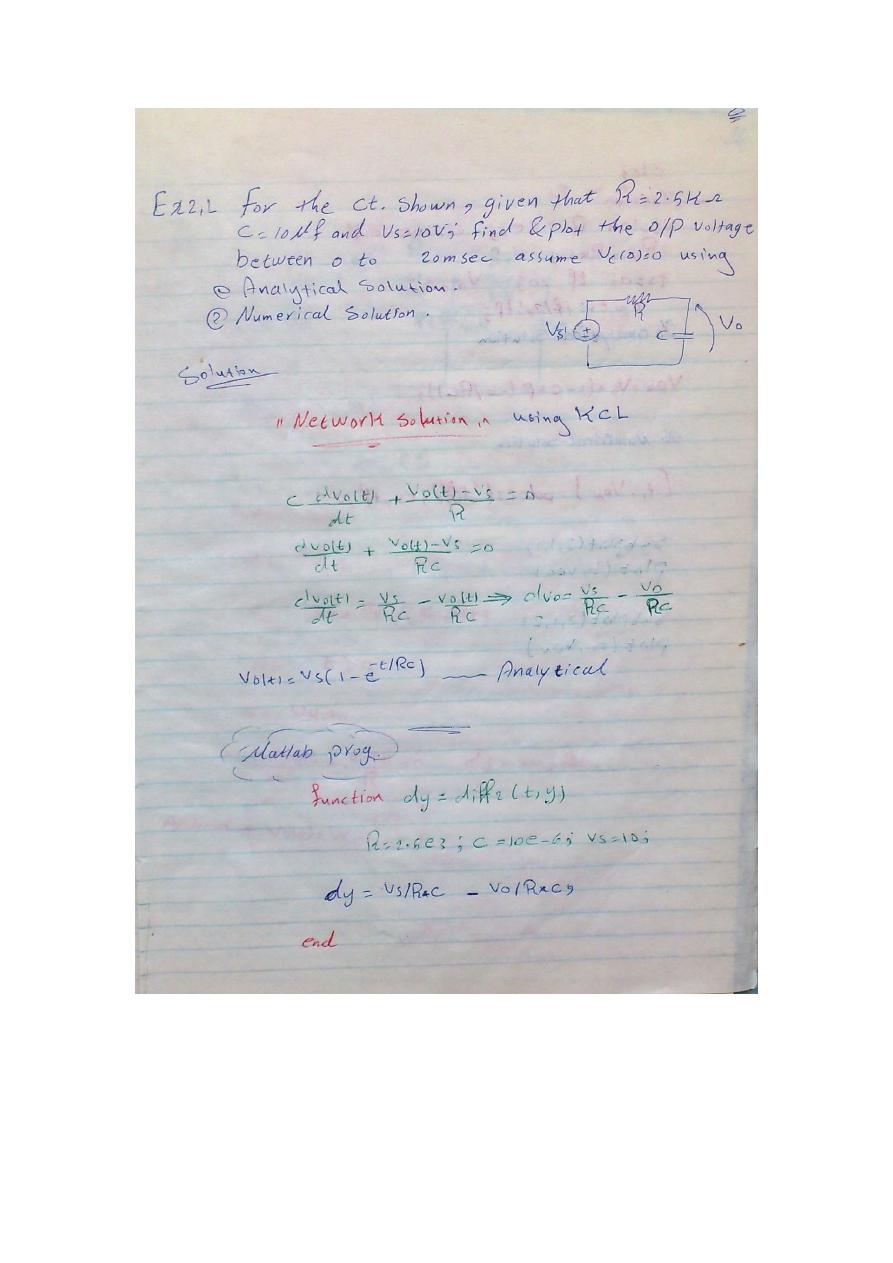 Ex2.1 For the ct. Shown, given that R=2.5KΩ
C=10µf and Vs=10V; find & plot the o/p voltage
between 0 to 20msec assume Vc(0)=0 using
① Analytical Solution.
② Numerical Solution.
Vs R C Vo
Solution
"Network Solution" using KCL
C dVo(t)/dt + (Vo(t)-Vs)/R = 0
dvo(t)/dt + (Vo(t)-Vs)/RC = 0
dvo(t)/dt = Vs/RC - Vo(t)/RC ⇒ dvo = Vs/RC - Vo/RC
Vo(t) = Vs(1-e^-t/RC) — Analytical
Matlab prog.
function dy = diff2(t,y)
R=2.5e3; C=10e-6; Vs=10;
dy = Vs/R*C - Vo/R*C;
end